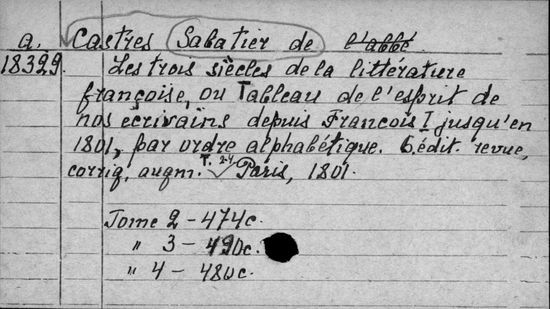 a. Castres, Sabatier de l'abbé
18329. Les trois siècles de la littérature
française, ou Tableau de l'esprit de
nos écrivains depuis François I jusqu'en
1801, par ordre alphabétique. 6.édit. revue,
corrig, augm. T. 2-4 Paris, 1801.
Tome 2 - 474c.
" 3 - 490c.
" 4 - 480c.